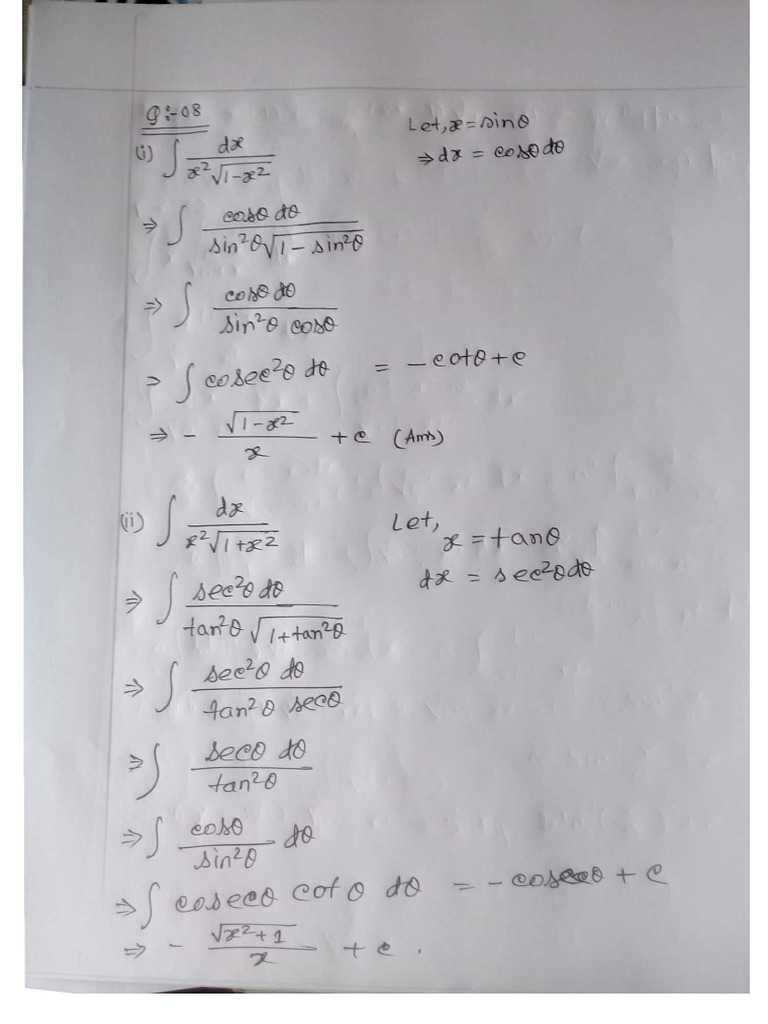 Q:-08
(i) ∫ dx / x²√1-x² Let, x = sinθ
⇒ dx = cosθ dθ
⇒ ∫ cosθ dθ / sin²θ√1 - sin²θ
⇒ ∫ cosθ dθ / sin²θ cosθ
⇒ ∫ cosec²θ dθ = - cotθ + c
⇒ - √1-x² / x + c (Ans)
(ii) ∫ dx / x²√1+x² Let,
x = tanθ
dx = sec²θ dθ
⇒ ∫ sec²θ dθ / tan²θ √1+tan²θ
⇒ ∫ sec²θ dθ / tan²θ secθ
⇒ ∫ secθ dθ / tan²θ
⇒ ∫ cosθ / sin²θ dθ
⇒ ∫ cosecθ cotθ dθ = - cosecθ + c
⇒ - √x²+1 / x + c .